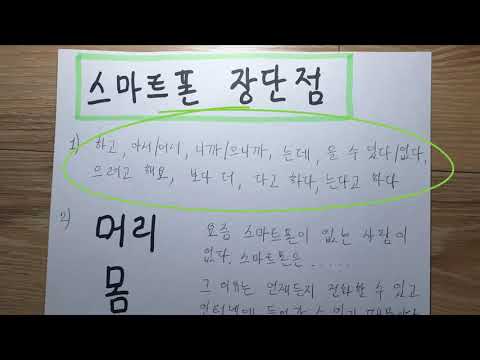 스마트폰 장단점
1) 하고, 아서/어서, 니까/으니까, 는데, 을 수 있다/없다,
으려고 해요, 보다 더, 다고 하다, 는다고 하다
2) 머리
요즘 스마트폰이 없는 사람이
없다. 스마트폰은 ......
몸
그 이유는 언제든지 전화할 수 있고
인터넷에 들어갈 수 있기 때문이다